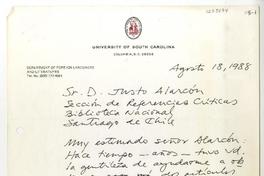 UNIVERSITY OF SOUTH CAROLINA
COLUMBIA, S.C. 29208
DEPARTMENT OF FOREIGN LANGUAGES
AND LITERATURES
Agosto 18, 1988
Sr. D. Justo Alarcón
Sección de Referencias Críticas
Biblioteca Nacional
Santiago de Chile
Muy estimado señor Alarcón:
Hace tiempo — años — tuvo Vd.
la gentileza de ayudarme a ob
mis dos artículos